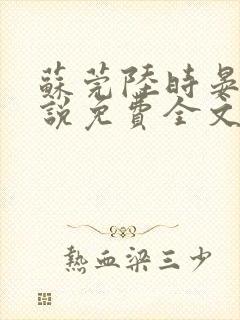 蘇莞陸時晏
說免費全文
熱血梁三少